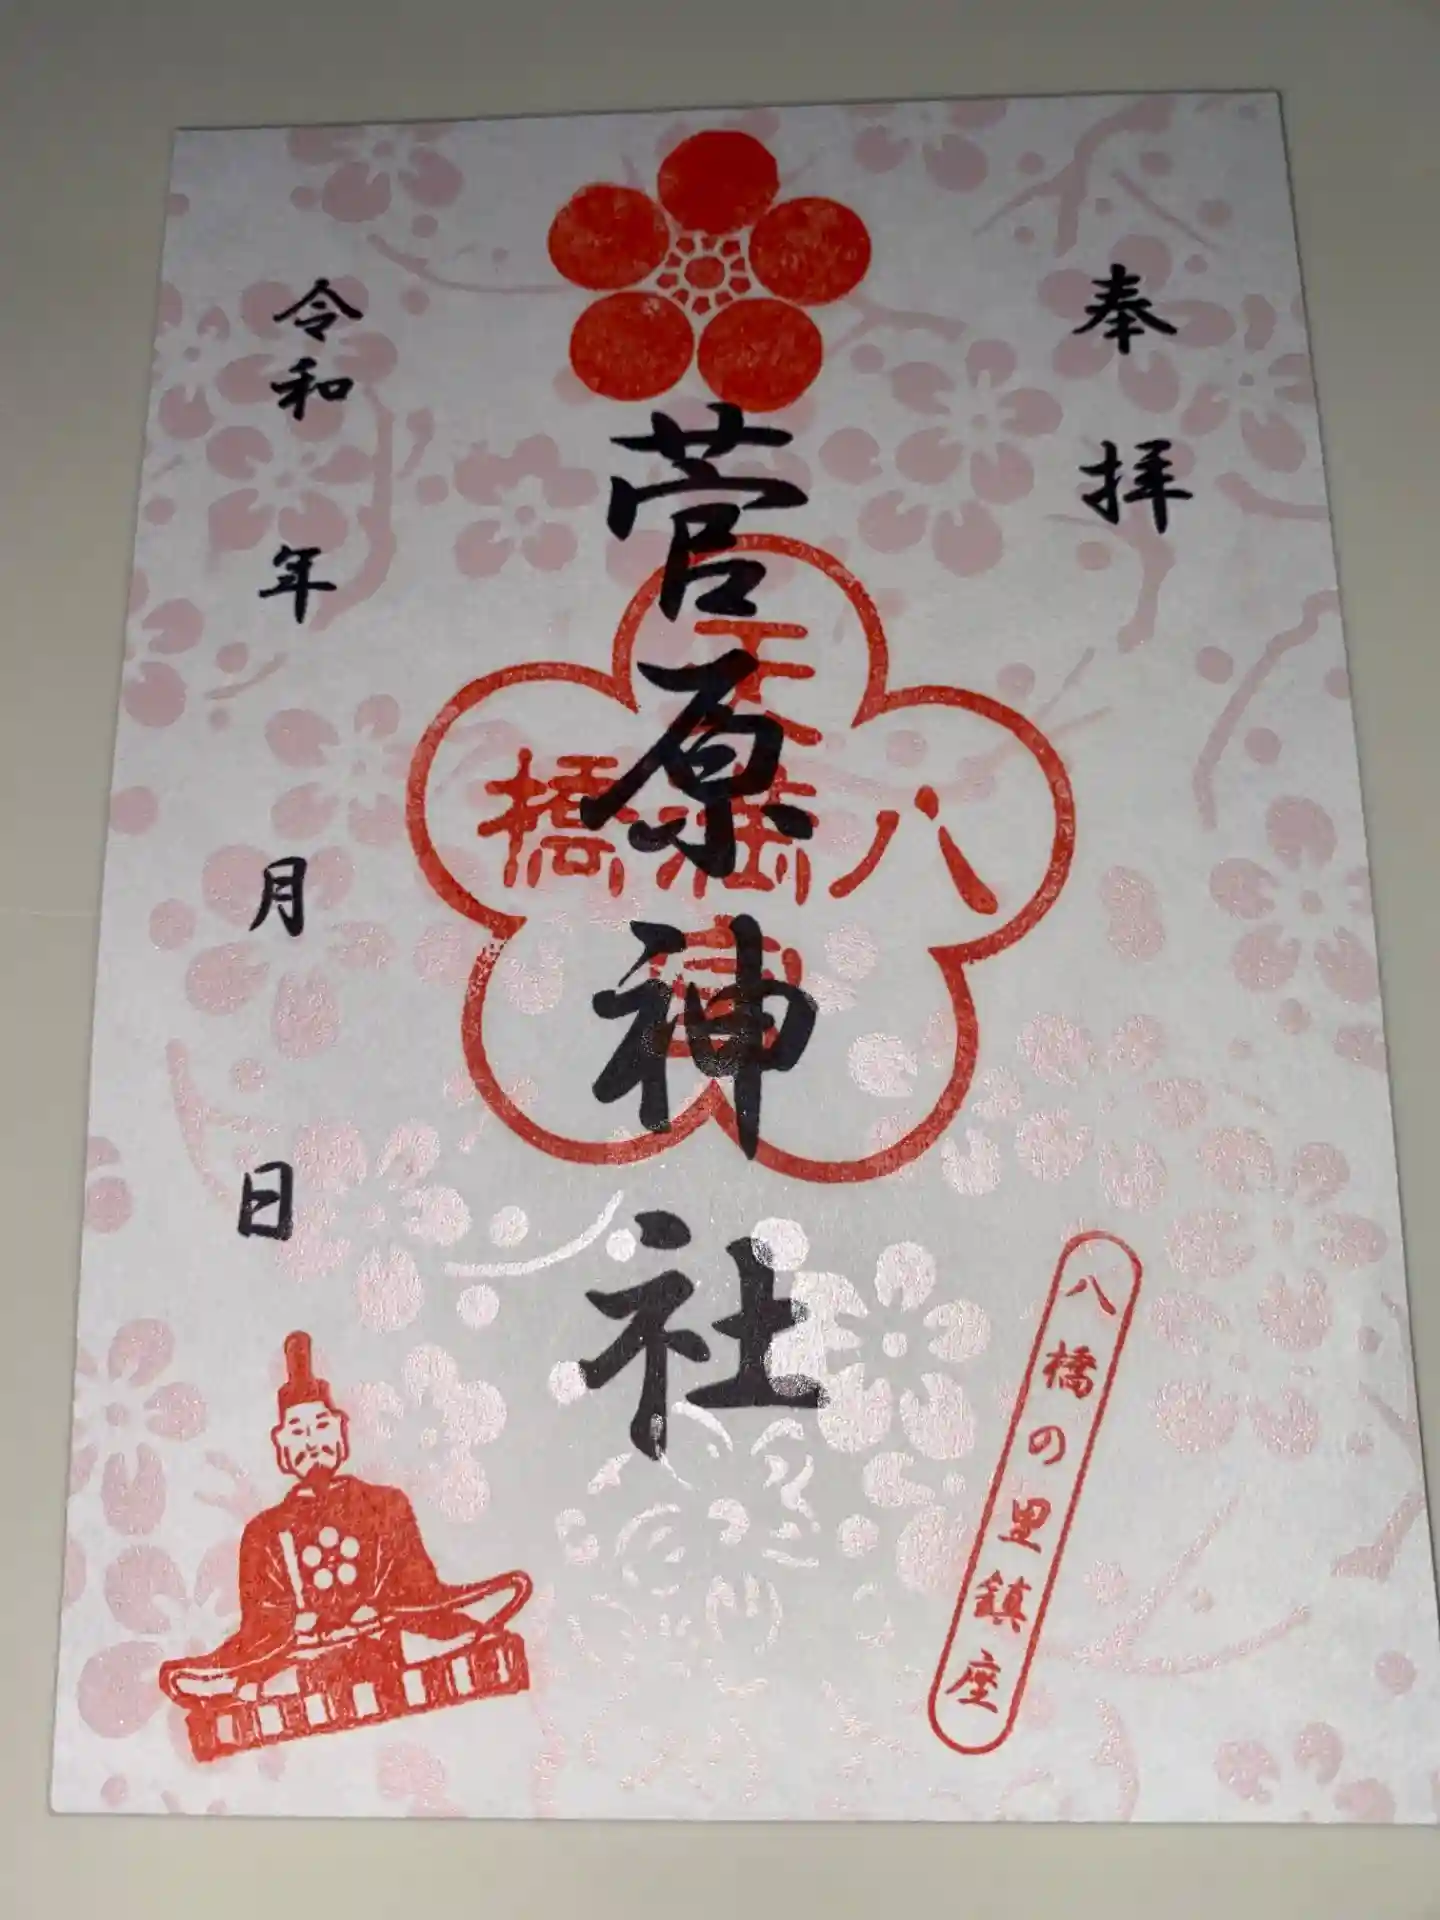 奉拝
菅原神社
八橋
天満宮
令和 年 月 日
八橋の里鎮座